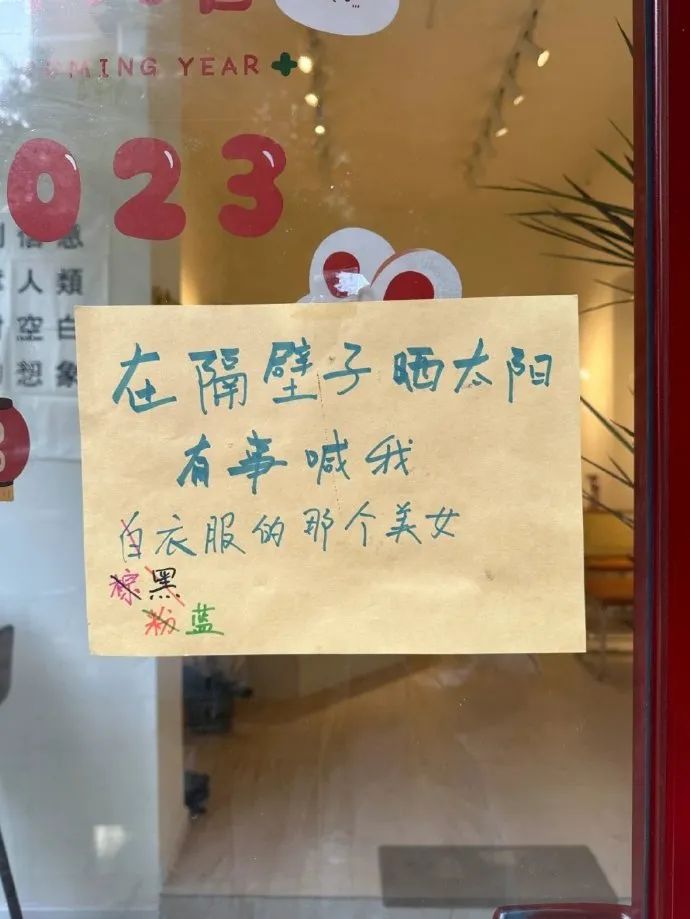 MING YEAR
023
信息
人類
空白
想象
在隔壁子晒太阳
有事喊我
白衣服的那个美女
棕黑
粉蓝